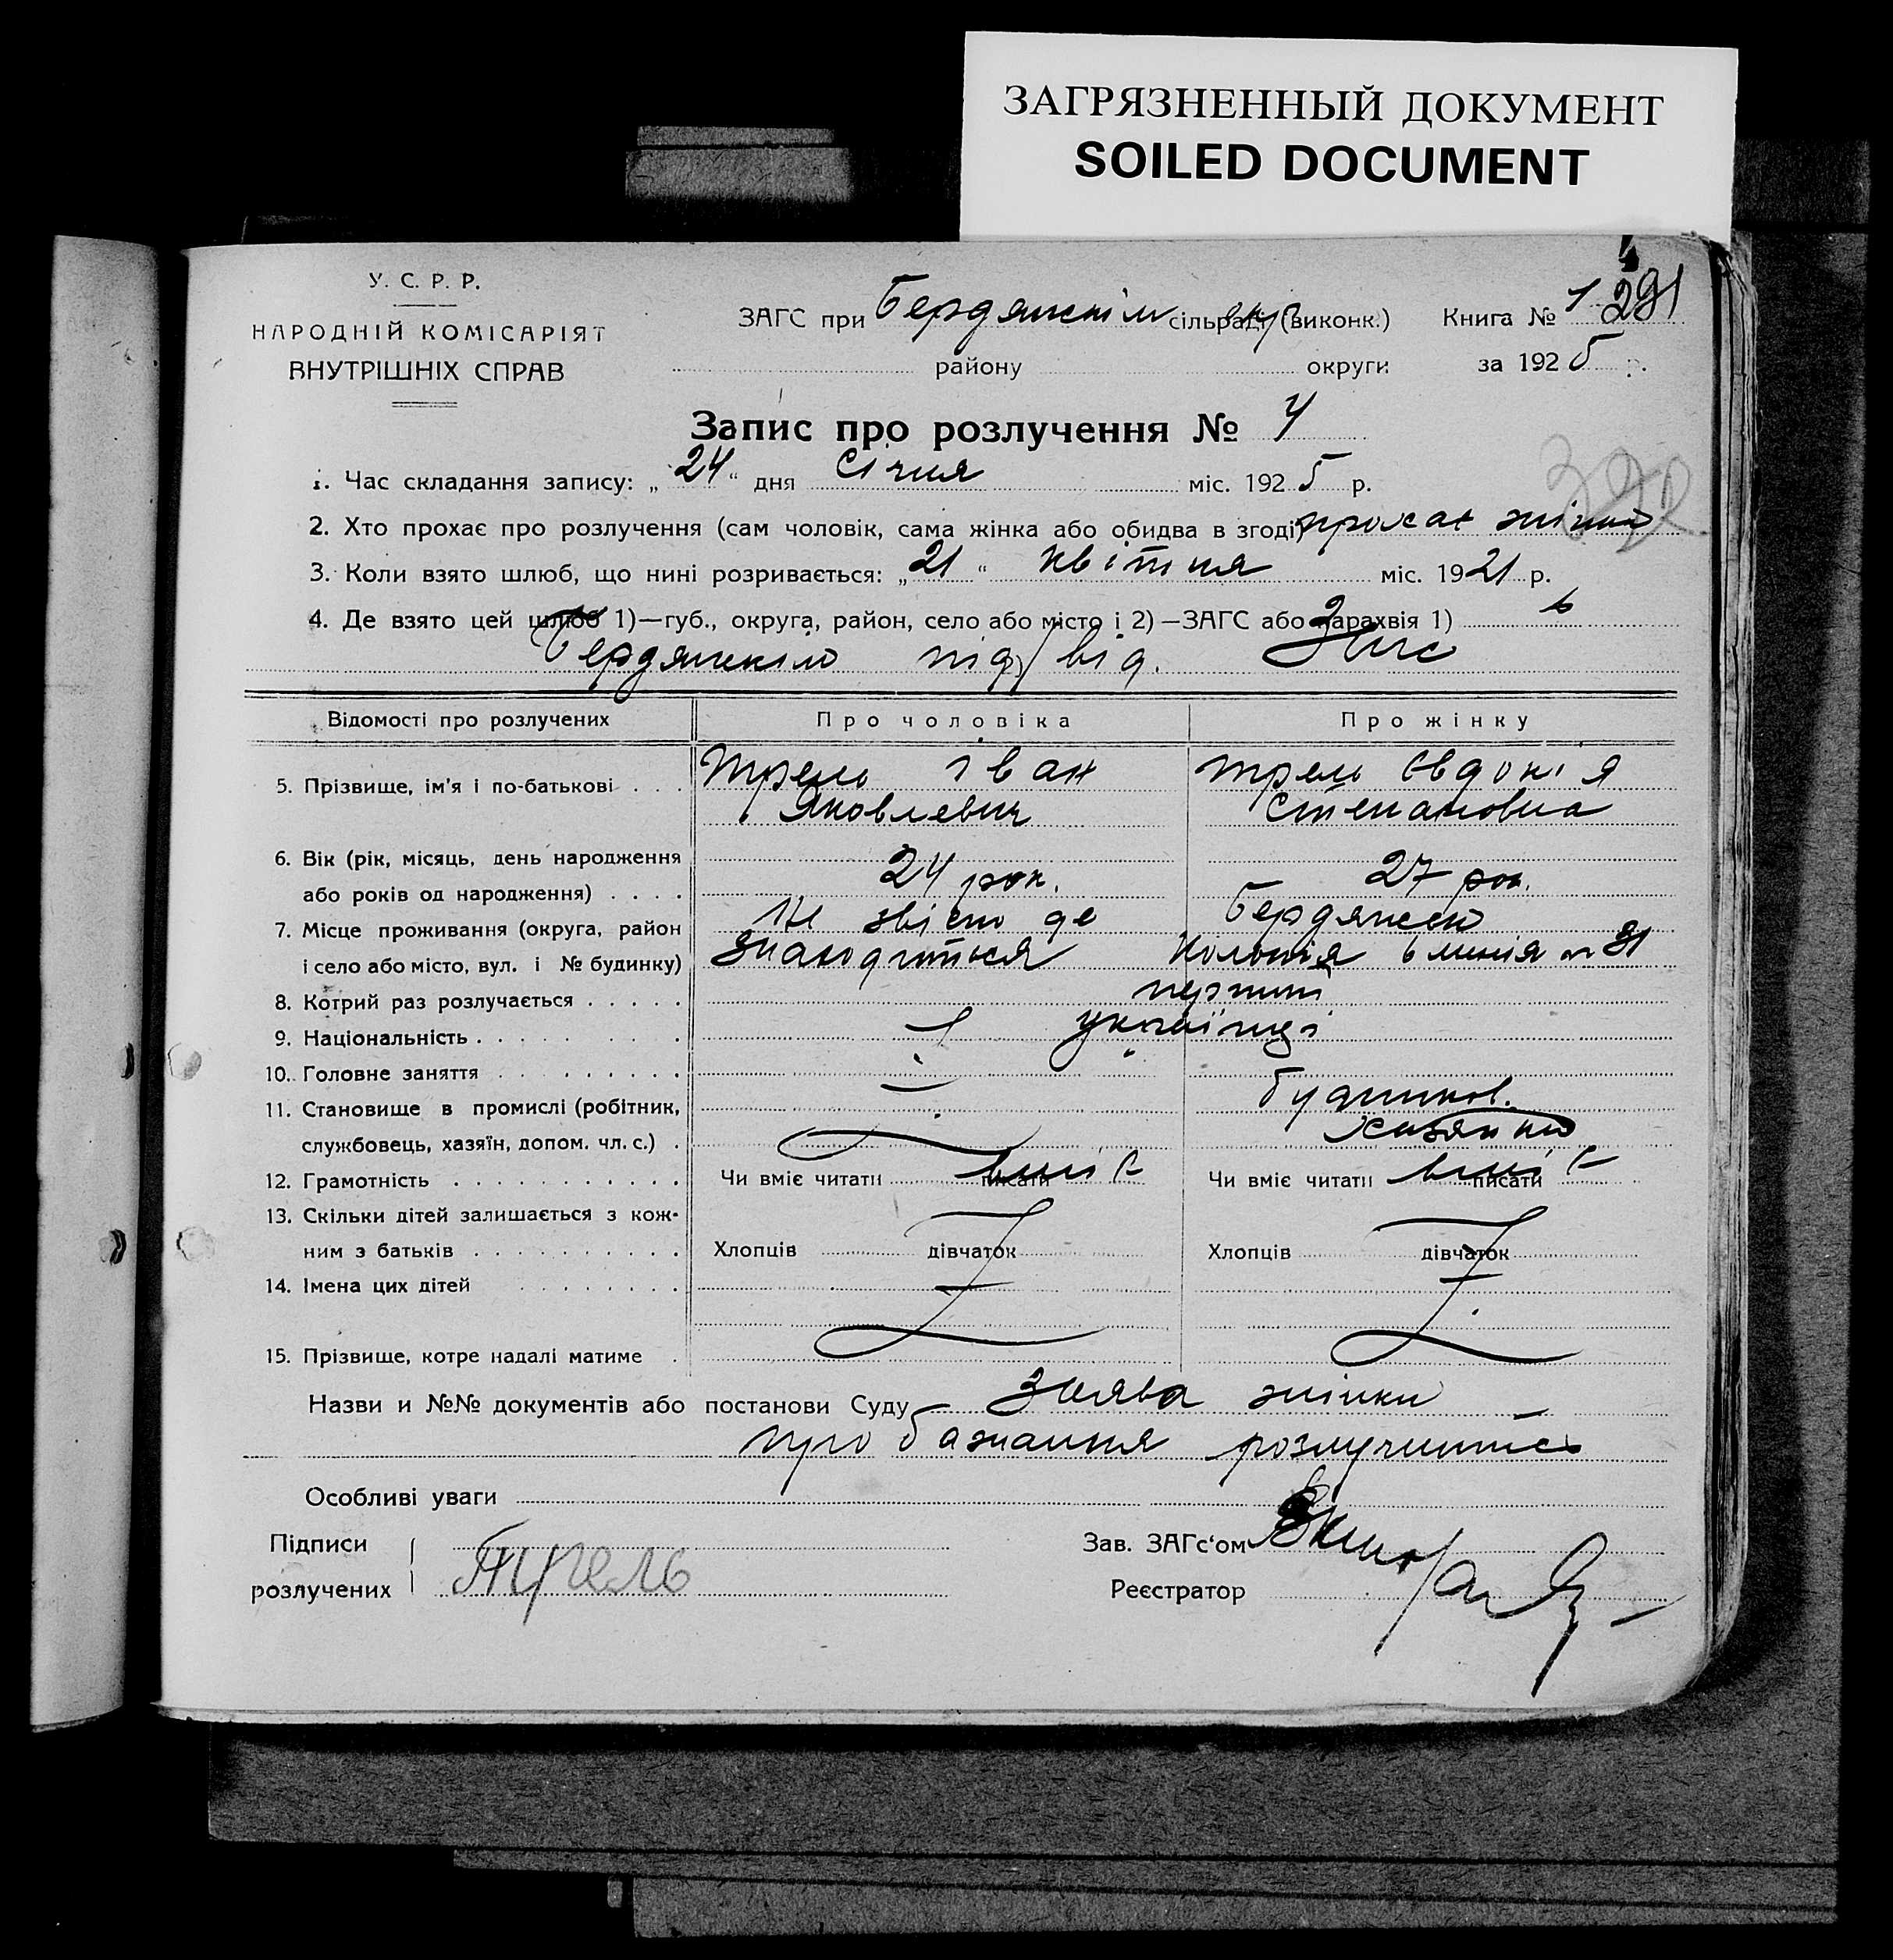 ЗАГРЯЗНЕННЫЙ ДОКУМЕНТ
SOILED DOCUMENT
У. С. Р. Р.
НАРОДНІЙ КОМІСАРІЯТ
ВНУТРІШНІХ СПРАВ
ЗАГС при Бердянськім сільраді окр (виконк.) Книга № 1 291
району округи за 1925 р.
Запис про розлучення № 4
1. Час складання запису: „24“ дня Січня міс. 1925 р.
2. Хто прохає про розлучення (сам чоловік, сама жінка або обидва в згоді) прохає жінка
3. Коли взято шлюб, що нині розривається: „21“ квітня міс. 1921 р.
4. Де взято цей шлюб 1)—губ., округа, район, село або місто і 2)—ЗАГС або парахвія 1) в
Бердянськім під/від. Загс
Відомості про розлучених Про чоловіка Про жінку
5. Прізвище, ім'я і по-батькові Трель Іван Яковлевич Трель Євдокія Степановна
6. Вік (рік, місяць, день народження
або років од народження) 24 рок. 27 рок.
7. Місце проживання (округа, район Не звісно де Бердянськ
і село або місто, вул. і № будинку) знаходиться Колонія 6 линія № 31
8. Котрий раз розлучається перший
9. Національність українці
10. Головне заняття
11. Становище в промислі (робітник, будинков.
службовець, хазяїн, допом. чл. с.) хазяйка
12. Грамотність Чи вміє читати писати вміє Чи вміє читати писати вміє
13. Скільки дітей залишається з кож-
ним з батьків Хлопців дівчаток Хлопців дівчаток
14. Імена цих дітей
15. Прізвище, котре надалі матиме
Назви и №№ документів або постанови Суду Заява жінки
про бажання розлучитись
Особливі уваги
Підписи Зав. ЗАГс'ом
розлучених Трель Реєстратор